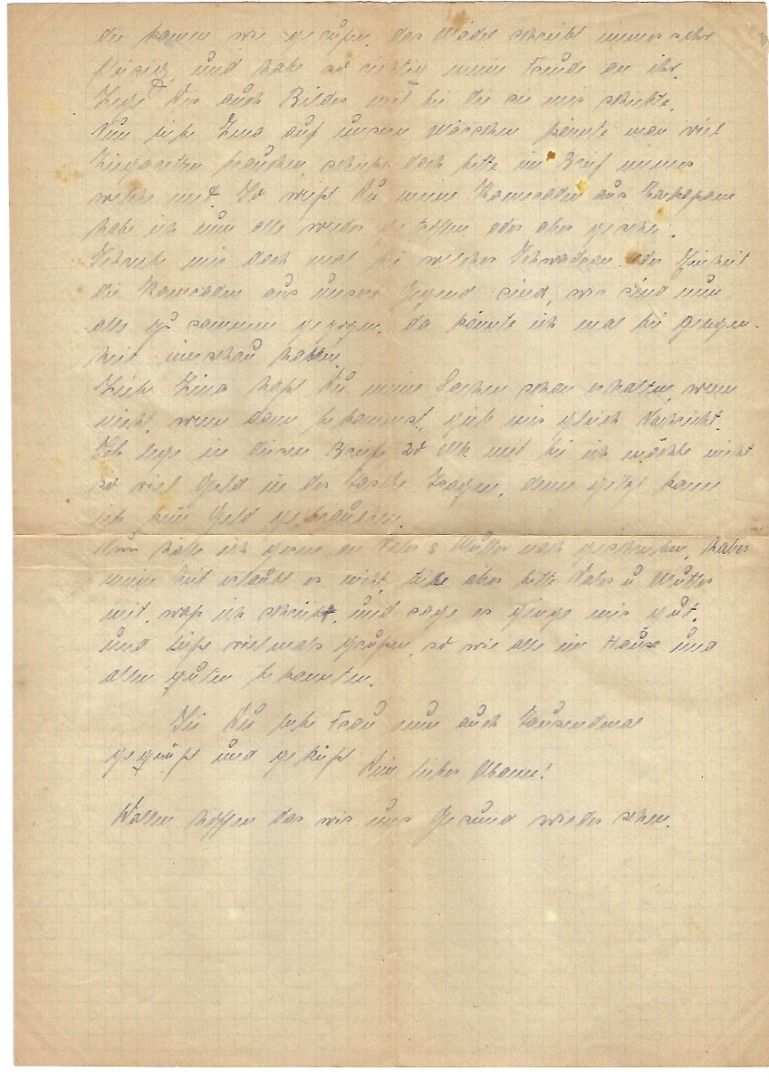 die kamen wie gerufen, das Mädel schreibt immer sehr
fleisig, und habe so richtig meine Freude an ihr.
Lege Dir auch Bilder mit bei die sie mir schickte.
Nun liebe Lina auf unsern märschen könnte man viel
Ziegaretten brauchen, schicke doch bitte im Brief immer
welche mit. So weißt Du meine Kameraden aus Zakopane
habe ich nun alle wieder getroffen oder aber gesehen.
Schreibe mir doch mal bei welcher Schwadron oder Einheit
die Kameraden aus unsere Gegend sind, wir sind nun
alle zu sammen gezogen, da könnte ich mal bei gelegen-
heit umschau halten.
Liebe Lina hast Du meine Sachen schon erhalten, wenn
nicht, wenn dann bekommst, gieb mir gleich Nachricht.
Ich lege in diesen Briefe 20 Mk mit bei ich möchte nicht
so viel Geld in der Tasche tragen, denn jetzt kann
ich kein Geld gebrauchen.
Nun hätte ich gerne an Vater u Mutter noch geschrieben, aber
meine Zeit erlaubt es nicht, teile aber bitte Vater u Mutter
mit, was ich schreibe, und sage es ginge mir gut,
und liese vielmals grüßen, so wie alle im Hause und
allen guten bekannten.
Sei Du liebe Frau nun auch tausendmal
gegrüßt und geküßt Dein lieber Mann!
Wollen hoffen das wir uns Gesund wieder sehen.